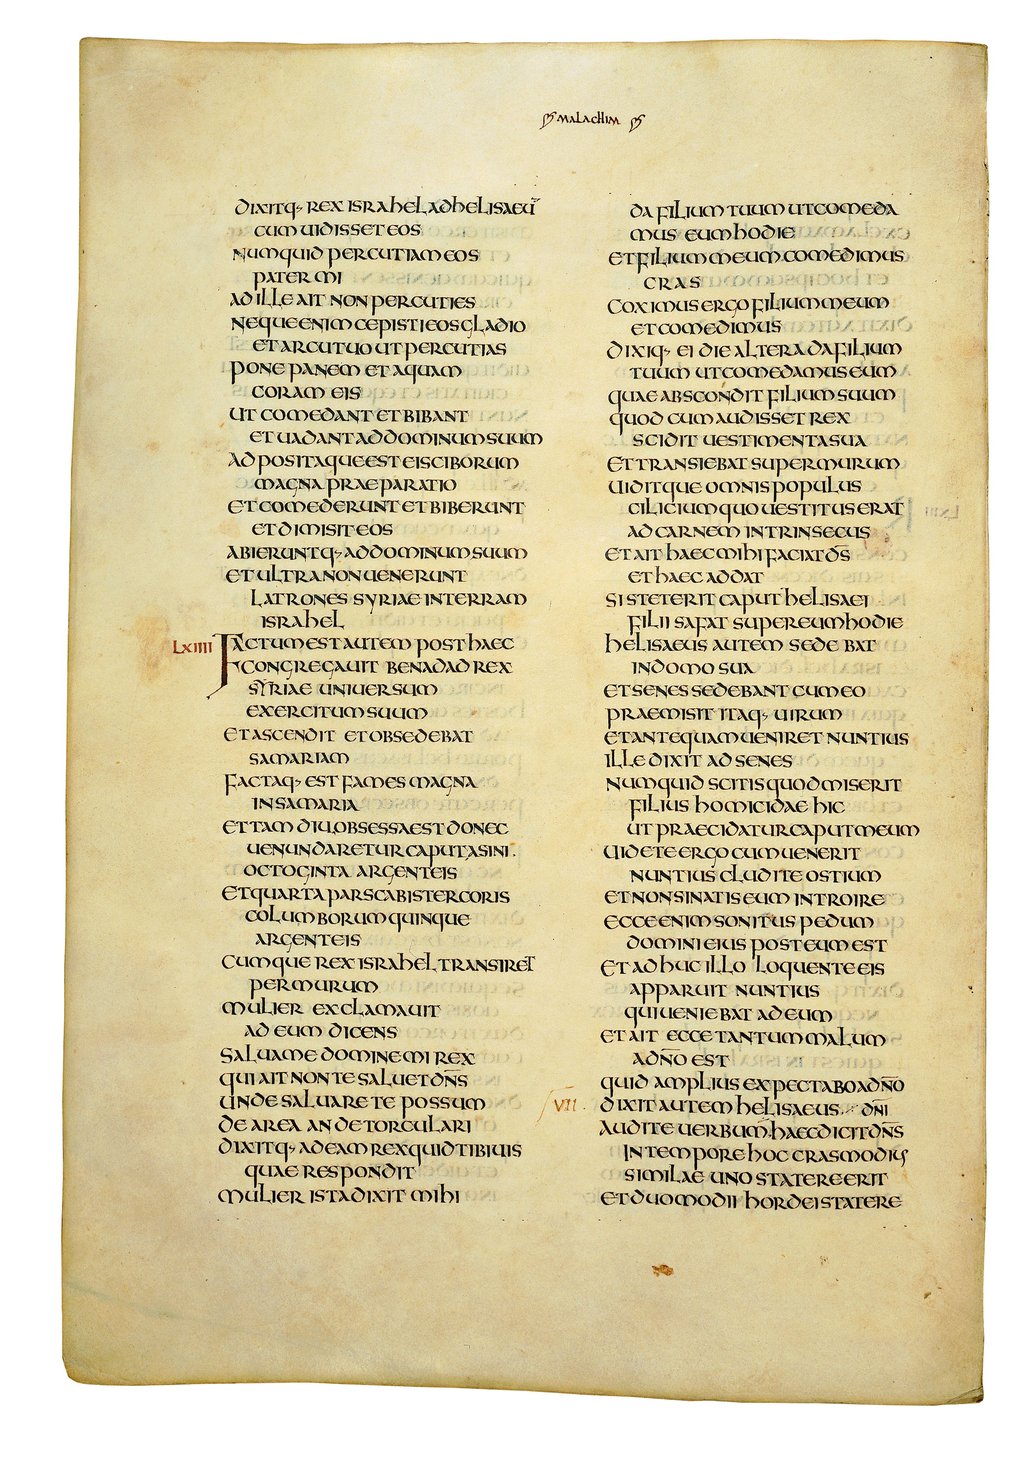 MALACHIM
DIXITQ· REX ISRAHEL AD HELISAEŪ
CUM UIDISSET EOS
NUMQUID PERCUTIAM EOS
PATER MI
AD ILLE AIT NON PERCUTIES
NEQUE ENIM CEPISTI EOS GLADIO
ET ARCU TUO UT PERCUTIAS
PONE PANEM ET AQUAM
CORAM EIS
UT COMEDANT ET BIBANT
ET UADANT AD DOMINUM SUUM
ADPOSITAQUE EST EIS CIBORUM
MAGNA PRAEPARATIO
ET COMEDERUNT ET BIBERUNT
ET DIMISIT EOS
ABIERUNTQ· AD DOMINUM SUUM
ET ULTRA NON UENERUNT
LATRONES SYRIAE IN TERRAM
ISRAHEL
LXIIII FACTUM EST AUTEM POST HAEC
CONGREGAUIT BENADAD REX
SYRIAE UNIUERSUM
EXERCITUM SUUM
ET ASCENDIT ET OBSEDEBAT
SAMARIAM
FACTAQ· EST FAMES MAGNA
IN SAMARIA
ET TAM DIU OBSESSA EST DONEC
UENUNDARETUR CAPUT ASINI .
OCTOGINTA ARGENTEIS
ET QUARTA PARS CABI STERCORIS
COLUMBORUM QUINQUE
ARGENTEIS
CUMQUE REX ISRAHEL TRANSIRET
PER MURUM
MULIER EXCLAMAUIT
AD EUM DICENS
SALUA ME DOMINE MI REX
QUI AIT NON TE SALUET DN̄S
UNDE SALUARE TE POSSUM
DE AREA AN DE TORCULARI
DIXITQ· AD EAM REX QUID TIBI UIS
QUAE RESPONDIT
MULIER ISTA DIXIT MIHI
DA FILIUM TUUM UT COMEDA
MUS EUM HODIE
ET FILIUM MEUM COMEDIMUS
CRAS
COXIMUS ERGO FILIUM MEUM
ET COMEDIMUS
DIXIQ· EI DIE ALTERA DA FILIUM
TUUM UT COMEDAMUS EUM
QUAE ABSCONDIT FILIUM SUUM
QUOD CUM AUDISSET REX
SCIDIT UESTIMENTA SUA
ET TRANSIEBAT SUPER MURUM
UIDITQUE OMNIS POPULUS
CILICIUM QUO UESTITUS ERAT
AD CARNEM INTRINSECUS
ET AIT HAEC MIHI FACIAT D̄S
ET HAEC ADDAT
SI STETERIT CAPUT HELISAEI
FILII SAFAT SUPER EUM HODIE
HELISAEUS AUTEM SEDEBAT
IN DOMO SUA
ET SENES SEDEBANT CUM EO
PRAEMISIT ITAQ· UIRUM
ET ANTEQUAM UENIRET NUNTIUS
ILLE DIXIT AD SENES
NUMQUID SCITIS QUOD MISERIT
FILIUS HOMICIDAE HIC
UT PRAECIDATUR CAPUT MEUM
UIDETE ERGO CUM UENERIT
NUNTIUS CLUDITE OSTIUM
ET NON SINATIS EUM INTROIRE
ECCE ENIM SONITUS PEDUM
DOMINI EIUS POST EUM EST
ET ADHUC ILLO LOQUENTE EIS
APPARUIT NUNTIUS
QUI UENIEBAT AD EUM
ET AIT ECCE TANTUM MALUM
A DN̄O EST
QUID AMPLIUS EXPECTABO A DN̄O
VII · DIXIT AUTEM HELISAEUS DN̄I
AUDITE UERBUM HAEC DICIT DN̄S
IN TEMPORE HOC CRAS MODIUS
SIMILAE UNO STATERE ERIT
ET DUO MODII HORDEI STATERE